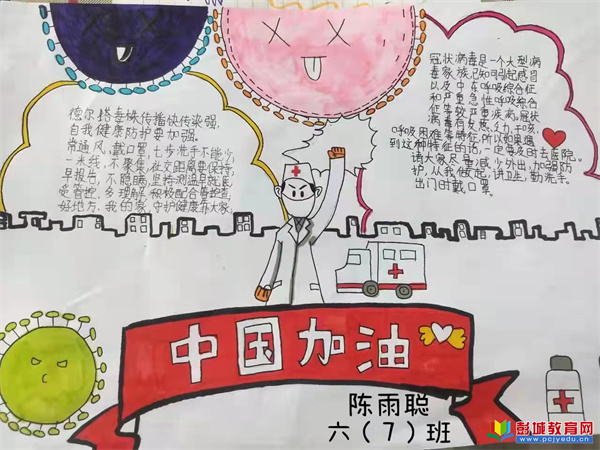 德尔塔毒株传播快传染强,
自我健康防护要加强。
常通风,戴口罩,七步洗手不能少,
一米线,不聚集,社交距离要保持,
早报告,不隐瞒,
好地方,我的家,守护健康靠大家。
冠状病毒是一个大型病
毒家族,已知可引起感冒
以及中东呼吸综合征
和严重急性呼吸综合
征等较严重疾病。冠状
病毒有发热、乏力、干咳、
呼吸困难等特征,所以如果遇
到这种特征的话,记要及时去医院。
请大家尽量减少外出,加强防
护,从我做起,讲卫生,勤洗手。
出门时戴口罩。
中国加油
陈雨聪
六(7)班
彭城教育网
www.pcjyedu.cn